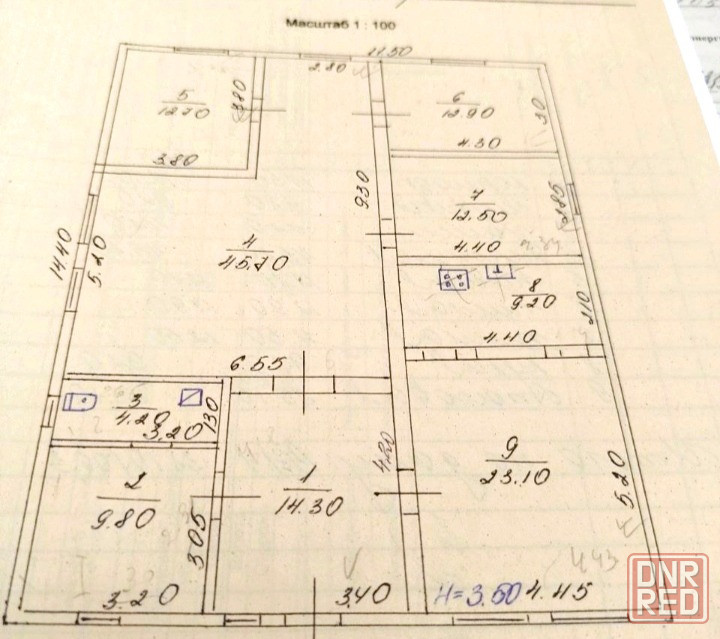 Масштаб 1 : 100
11.50
2.80
5
12.70
3.80
3.80
6
12.90
4.30
30
9.30
7
12.50
2.85
4.40
14.40
5.20
4
45.70
8
9.20
2.10
4.40
6.55
3
4.20
3.20
1.30
4.20
9
23.10
5.20
2
9.80
3.05
3.20
1
14.30
3.40
H=3.50
4.45
443
DNR
RED